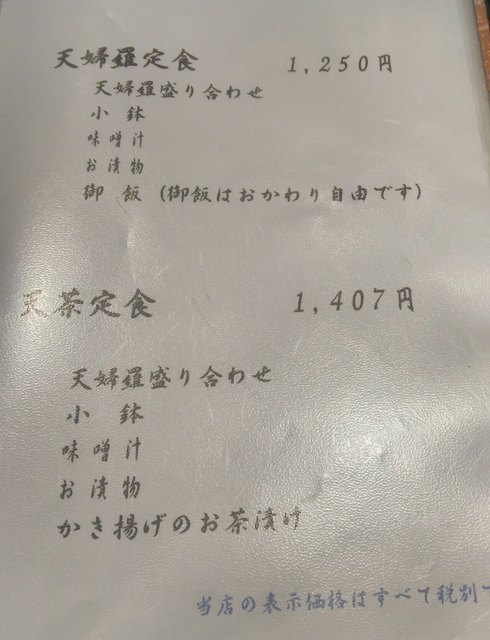 天婦羅定食 1,250円
天婦羅盛り合わせ
小鉢
味噌汁
お漬物
御飯(御飯はおかわり自由です)
天茶定食 1,407円
天婦羅盛り合わせ
小鉢
味噌汁
お漬物
かき揚げのお茶漬け
当店の表示価格はすべて税別で